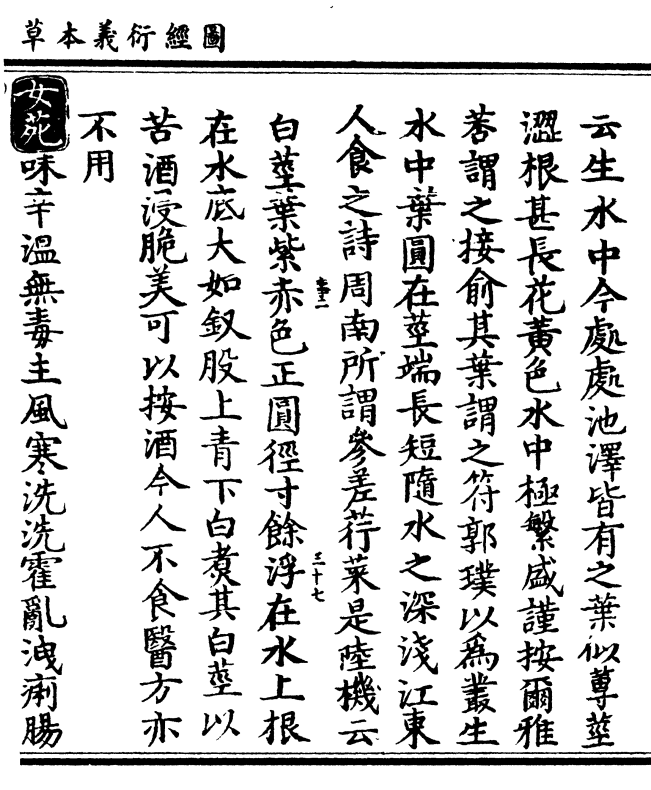 圖經衍義本草
云生水中今處處池澤皆有之葉似蓴莖
澀根甚長花黃色水中極繁盛謹按爾雅
莕謂之接俞其葉謂之符郭璞以為叢生
水中葉圓在莖端長短隨水之深淺江東
人食之詩周南所謂參差荇菜是陸機云
白莖葉紫赤色正圓徑寸餘浮在水上根
在水底大如釵股上青下白煑其白莖以
苦酒浸脆美可以按酒今人不食醫方亦
不用
女菀味辛溫無毒主風寒洗洗霍亂洩痢腸
三十七